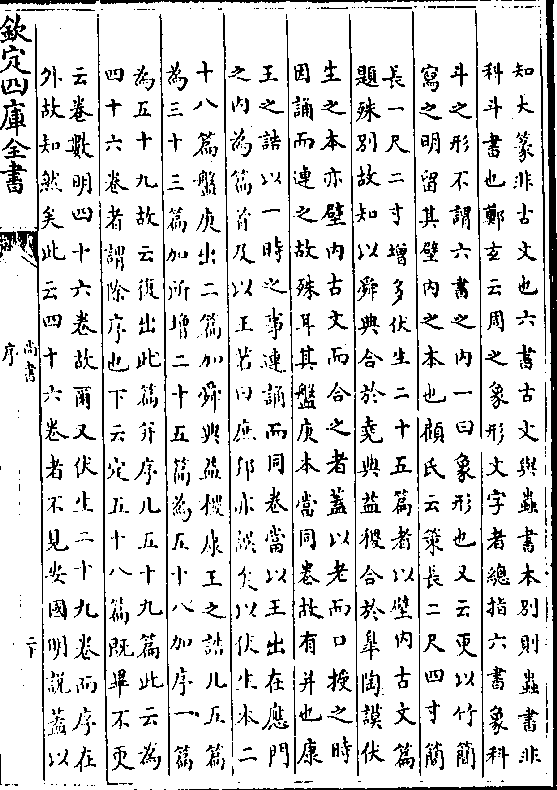 知大篆非古文也六書古文與蟲書本別則蟲書非
科斗書也鄭玄云周之象形文字者總指六書象科
斗之形不謂六書之内一曰象形也又云更以竹簡
寫之明留其壁内之本也顧氏云策長二尺四寸簡
長一尺二寸增多伏生二十五篇者以壁内古文篇
題殊別故知以舜典合於堯典益稷合於皋陶謨伏
生之本亦壁内古文而合之者蓋以老而口授之時
因誦而連之故殊耳其盤庚本當同卷故有并也康
王之誥以一時之事連誦而同卷當以王出在應門
之内為篇首及以王若曰庶邦亦誤矣以伏生本二
十八篇盤庚出二篇加舜典益稷康王之誥凡五篇
為三十三篇加所增二十五篇為五十八加序一篇
為五十九故云復出此篇并序凡五十九篇此云為
四十六卷者謂除序也下云定五十八篇既畢不更
云卷數明四十六卷故爾又伏生二十九卷而序在
外故知然矣此云四十六卷者不見安國明說蓋以
欽定四庫全書
尚書
序
二十